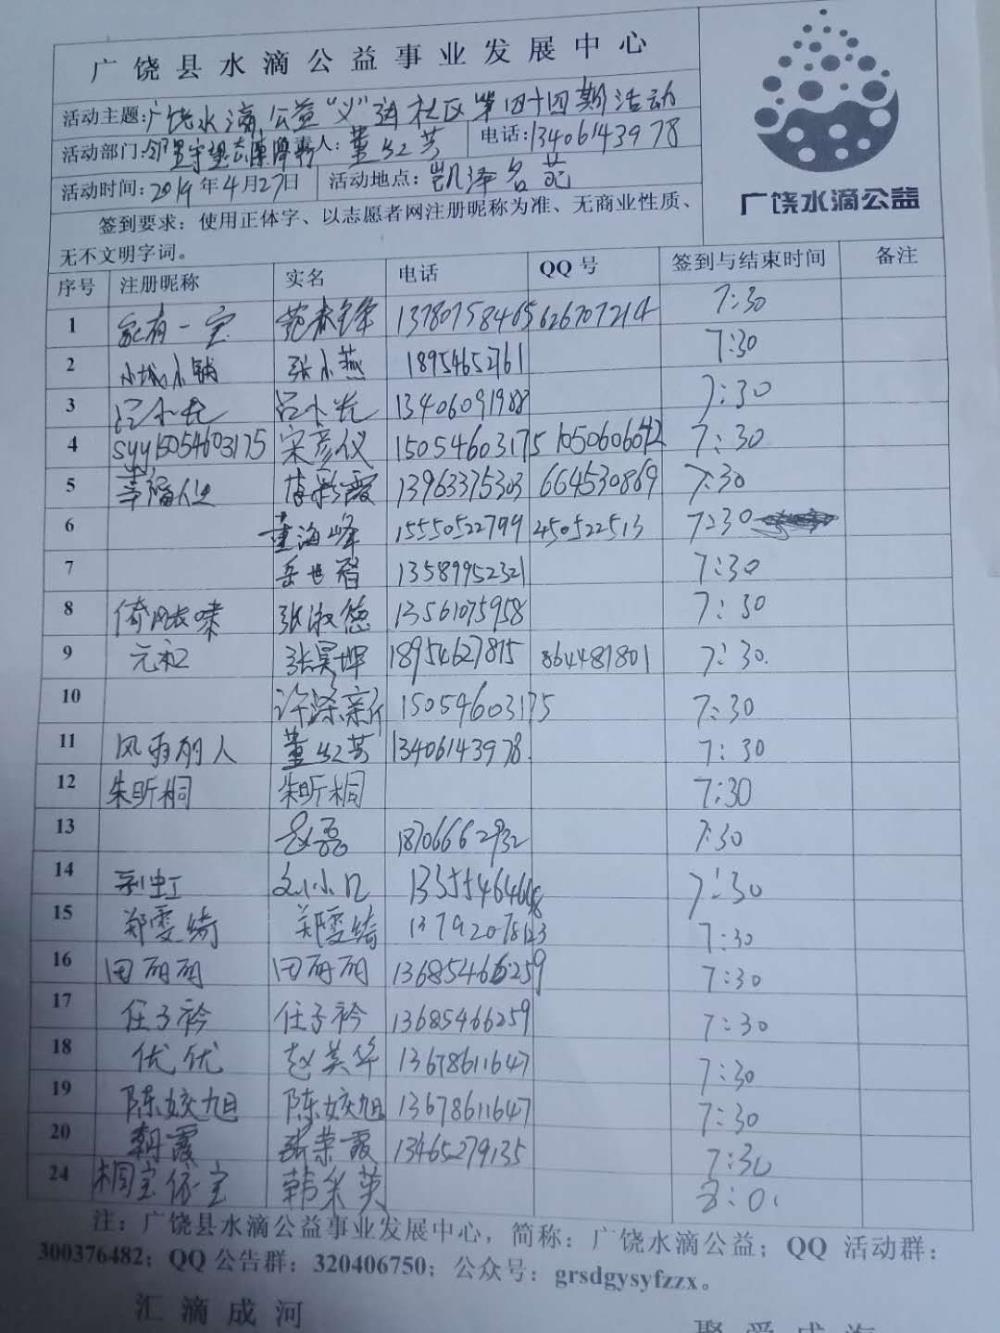 广饶县水滴公益事业发展中心
活动主题:广饶水滴公益“义”进社区第四十四期活动
活动部门: 责人:董红芳 电话:13406143978
活动时间:2019年4月27日 活动地点:凯泽名苑
广饶水滴公益
签到要求:使用正体字、以志愿者网注册昵称为准、无商业性质、
无不文明字词。
序号 注册昵称 实名 电话 QQ号 签到与结束时间 备注
1 家有一宝 范春锋 13780758465 626707214 7:30
2 小城小铺 张小燕 18954652761 7:30
3 吕小光 吕小光 13406091988 7:30
4 syy15054603175 宋彦仪 15054603175 1050606042 7:30
5 幸福人生 李彩霞 13963375303 664530869 7:30
6 董海峰 15550522799 450522513 7:30
7 岳世智 13589952321 7:30
8 倚 张淑德 13561075958 7:30
9 元和 张昊坤 18954627815 864487801 7:30
10 许涤新 15054603175 7:30
11 风雨丽人 董红芳 13406143978 7:30
12 朱昕桐 朱昕桐 7:30
13 赵磊 18706662932 7:30
14 彩虹 刘小凡 7:30
15 郑雯绮 郑雯绮 7:30
16 田丽丽 田丽丽 13685466259 7:30
17 任子衿 任子衿 13685466259 7:30
18 优优 赵美华 13678611647 7:30
19 陈姣旭 陈姣旭 13678611647 7:30
20 朝霞 张荣霞 13465279135 7:30
24 桐宝依宝 韩采英
注:广饶县水滴公益事业发展中心,简称:广饶水滴公益;QQ 活动群:
300376482;QQ公告群:320406750;公众号:grsdgysyfzzx。
汇滴成河 聚爱成海